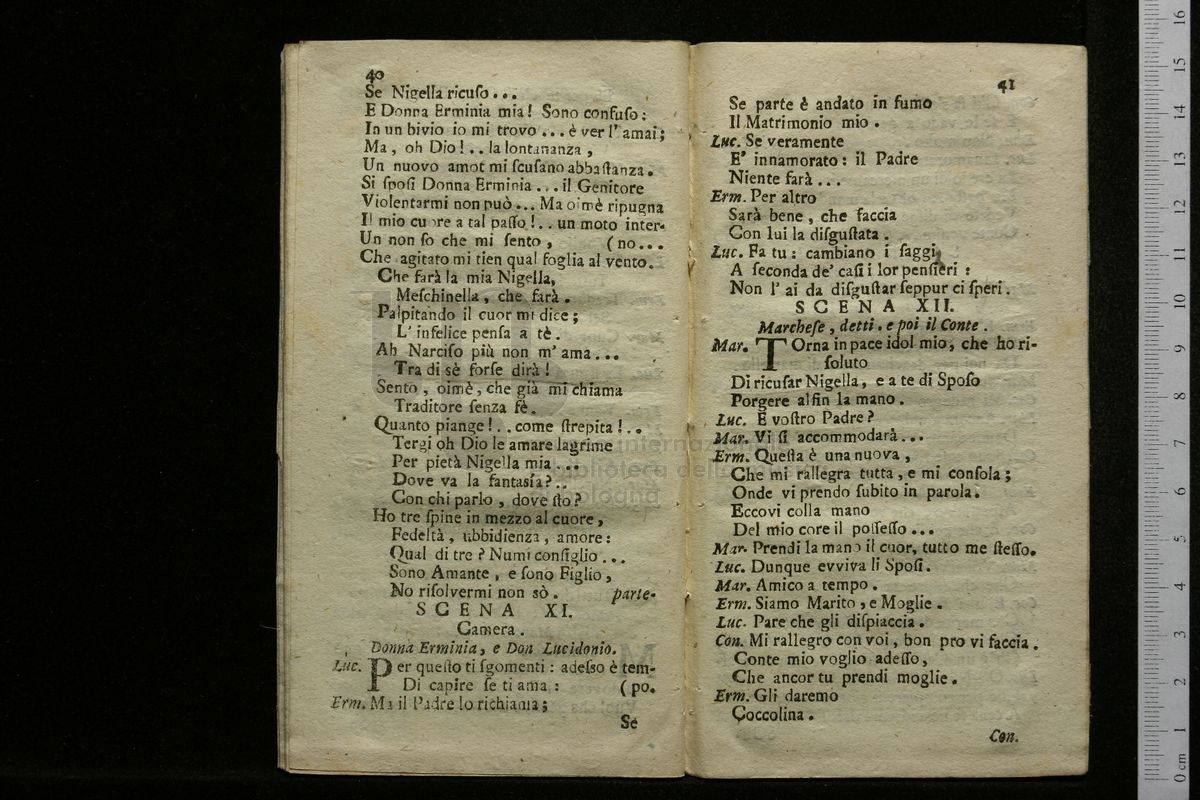 40
Se Nigella ricuſo...
E Donna Erminia mia! Sono confuſo:
In un bivio io mi trovo... è ver l' amai;
Ma, oh Dio!.. la lontananza,
Un nuovo amor mi ſcuſano abbaſtanza.
Si ſpoſi Donna Erminia... il Genitore
Violentarmi non può... Ma oimè ripugna
Il mio cuore a tal paſſo!.. un moto inter-
Un non ſo che mi ſento, (no...
Che agitato mi tien qual foglia al vento.
Che farà la mia Nigella,
Meſchinella, che farà.
Palpitando il cuor mi dice;
L' infelice penſa a tè.
Ah Narciſo più non m' ama...
Tra di sè forſe dirà!
Sento, oimè, che già mi chiama
Traditore ſenza fè.
Quanto piange!.. come ſtrepita!..
Tergi oh Dio le amare lagrime
Per pietà Nigella mia...
Dove va la fantasìa?..
Con chi parlo, dove ſto?
Ho tre ſpine in mezzo al cuore,
Fedeltà, ubbidienza, amore:
Qual di tre? Numi conſiglio...
Sono Amante, e ſono Figlio,
No riſolvermi non sò. parte.
SCENA XI.
Camera.
Donna Erminia, e Don Lucidonio.
Luc. Per queſto ti ſgomenti: adeſso è tem-
Di capire ſe ti ama: (po.
Erm. Ma il Padre lo richiama;
Se
41
Se parte è andato in fumo
Il Matrimonio mio.
Luc. Se veramente
E' innamorato: il Padre
Niente farà...
Erm. Per altro
Sarà bene, che faccia
Con lui la diſguſtata.
Luc. Fa tu: cambiano i ſaggi
A ſeconda de' caſi i lor penſieri:
Non l' ai da diſguſtar ſeppur ci ſperi.
SCENA XII.
Marcheſe, detti. e poi il Conte.
Mar. TOrna in pace idol mio, che ho ri-
ſoluto
Di ricuſar Nigella, e a te di Spoſo
Porgere alfin la mano.
Luc. E voſtro Padre?
Mar. Vi ſi accommodarà...
Erm. Queſta è una nuova,
Che mi rallegra tutta, e mi conſola;
Onde vi prendo ſubito in parola.
Eccovi colla mano
Del mio core il poſſeſſo...
Mar. Prendi la mano il cuor, tutto me ſteſſo.
Luc. Dunque evviva li Spoſi.
Mar. Amico a tempo.
Erm. Siamo Marito, e Moglie.
Luc. Pare che gli diſpiaccia.
Con. Mi rallegro con voi, bon pro vi faccia.
Conte mio voglio adeſſo,
Che ancor tu prendi moglie.
Erm. Gli daremo
Coccolina.
Con.